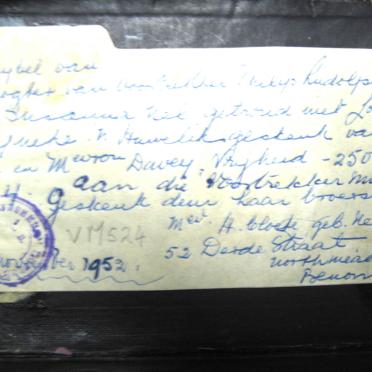 ybel van
ogter van voortrekker Philip Rudolph
Susanna Nel getroud met
meke. 'n Huweliksgeskenk va
en Mevrou Davey Vryheid - 250
4. aan die Voortrekker M
Geskenk deur haar broers
Mev. H. Cloete geb. Ne
VM524
52 Derde Straat
vember 1952.
northmead
Benon